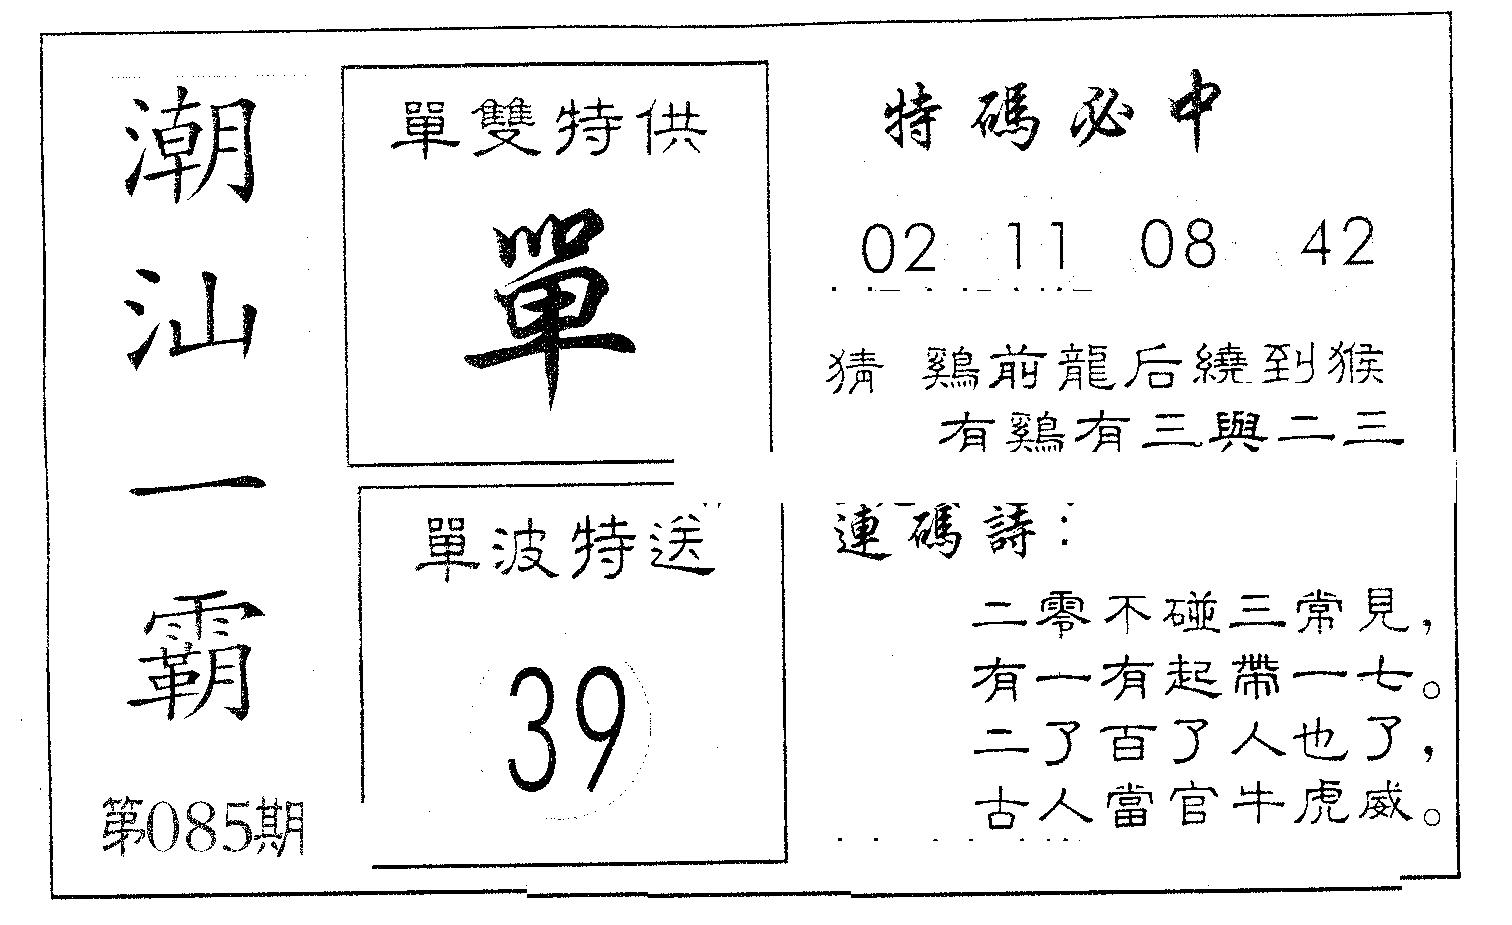 潮汕一霸
第085期
單雙特供
單
單波特送
39
特碼必中
02 11 08 42
猜 鷄前龍后繞到猴
有鷄有三與二三
連碼詩：
二零不碰三常見，
有一有起帶一七。
二了百了人也了，
古人當官牛虎威。